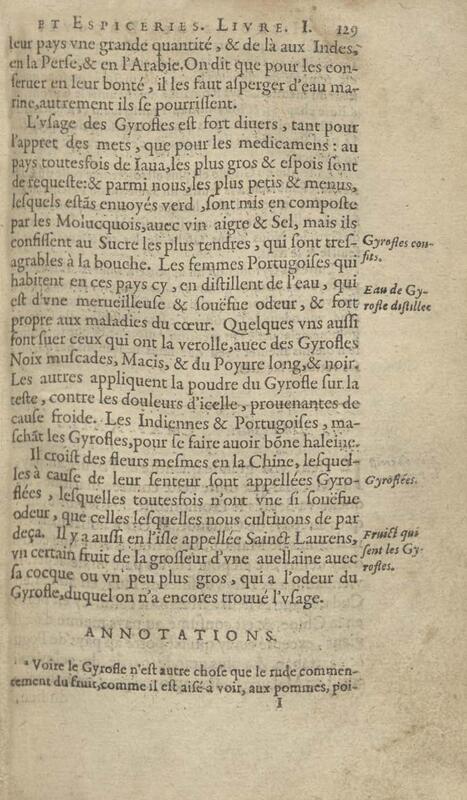 ET ESPICERIES. LIVRE. I. 129
leur pays vne grande quantité, & de là aux Indes,
en la Perse, & en l'Arabie. On dit que pour les con-
seruer en leur bonté, il les faut asperger d'eau ma-
rine, autrement ils se pourrissent.
L'vsage des Gyrofles est fort diuers, tant pour
l'appret des mets, que pour les medicamens: au
pays toutesfois de Iaua, les plus gros & espois sont
de requeste: & parmi nous, les plus petis & menus,
lesquels estãs enuoyés verd, sont mis en composte
par les Molucquois, auec vin aigre & Sel, mais ils
confissent au Sucre les plus tendres, qui sont tres-
agrables à la bouche. Les femmes Portugoises qui
habitent en ces pays cy, en distillent de l'eau, qui
est d'vne merueilleuse & souëfue odeur, & fort
propre aux maladies du cœur. Quelques vns aussi
font suer ceux qui ont la verolle, auec des Gyrofles
Noix muscades, Macis, & du Poyure long, & noir.
Les autres appliquent la poudre du Gyrofle sur la
teste, contre les douleurs d'icelle, prouenantes de
cause froide. Les Indiennes & Portugoises, ma-
schãt les Gyrofles, pour se faire auoir bõne haleine.
Il croist des fleurs mesmes en la Chine, lesquel-
les à cause de leur senteur sont appellées Gyro-
flées, lesquelles toutesfois n'ont vne si souëfue
odeur, que celles lesquelles nous cultiuons de par
deça. Il y a aussi en l'isle appellée Sainct Laurens,
vn certain fruit de la grosseur d'vne auellaine auec
sa cocque ou vn peu plus gros, qui a l'odeur du
Gyrofle, duquel on n'a encores trouué l'vsage.
Gyrofles con-
fits.
Eau de Gy-
rofle distillee
Gyroflées.
Fruict qui
sent les Gy-
rofles.
ANNOTATIONS.
a Voire le Gyrofle n'est autre chose que le rude commen-
cement du fruit, comme il est aisé à voir, aux pommes, poi-
I